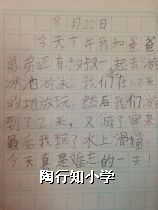 8月22日
今天下午我和爸爸
弟弟还有叔叔一起去游
泳池游泳。我们在0.7米
的地放玩，然后我们游
到了2米，又游了回来
最后我玩了水上滑梯。
今天真是难忘的一天！
陶行知小学